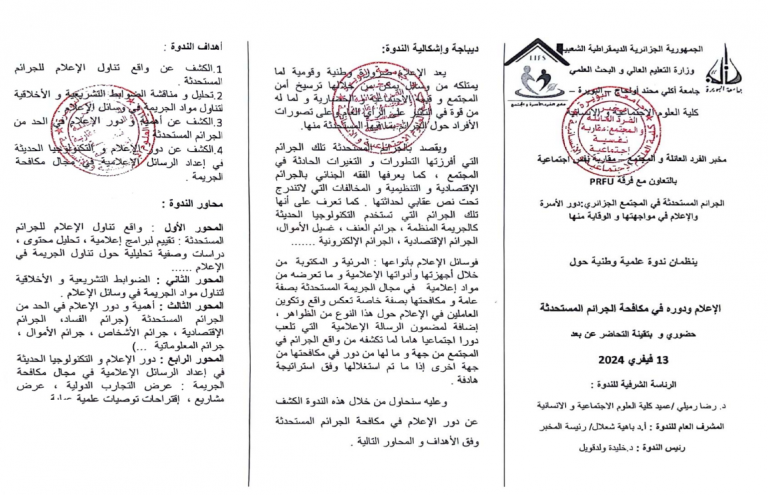 الجمهورية الجزائرية الديمقراطية الشعبية
وزارة التعليم العالي و البحث العلمي
جامعة أكلي محند أولحاج – البويرة –
كلية العلوم الاجتماعية و الإنسانية
مخبر الفرد العائلة و المجتمع – مقاربة نفس اجتماعية
بالتعاون مع فرقة PRFU
الجرائم المستحدثة في المجتمع الجزائري:دور الأسرة
والإعلام في مواجهتها و الوقاية منها
ينظمان ندوة علمية وطنية حول
الإعلام ودوره في مكافحة الجرائم المستحدثة
حضوري و بتقينة التحاضر عن بعد
13 فيفري 2024
الرئاسة الشرفية للندوة :
د. رضا رميلي /عميد كلية العلوم الاجتماعية و الانسانية
المشرف العام للندوة : أ.د باهية شعلال/ رئيسة المخبر
رئيس الندوة : د.خليدة ولدقويل
LIFS
جامعة البويرة
ديباجة وإشكالية الندوة:
يعد الإعلام ضرورة وطنية وقومية لما
يمتلكه من وسائل يمكن من خلالها ترسيخ أمن
المجتمع و قيمه الاجتماعية و الحضارية و لما له
من قوة في التأثير على الرأي العام وعلى تصورات
الأفراد حول الجرائم بما فيها المستحدثة منها.
ويقصد بالجرائم المستحدثة تلك الجرائم
التي أفرزتها التطورات و التغيرات الحادثة في
المجتمع ، كما يعرفها الفقه الجنائي بالجرائم
الإقتصادية و التنظيمية و المخالفات التي لاتندرج
تحت نص عقابي لحداثتها . كما تعرف على أنها
تلك الجرائم التي تستخدم التكنولوجيا الحديثة
كالجريمة المنظمة ، جرائم العنف، غسيل الأموال،
الجرائم الإقتصادية ، الجرائم الإلكترونية .......
فوسائل الإعلام بأنواعها : المرئية و المكتوبة من
خلال أجهزتها وأدواتها الإعلامية و ما تعرضه من
مواد إعلامية في مجال الجريمة المستحدثة بصفة
عامة و مكافحتها بصفة خاصة تعكس واقع وتكوين
العاملين في الإعلام حول هذا النوع من الظواهر ،
إضافة لمضمون الرسالة الإعلامية التي تلعب
دورا اجتماعيا هاما لما تكشفه من واقع الجرائم في
المجتمع من جهة و ما لها من دور في مكافحتها من
جهة اخرى إذا ما تم استغلالها وفق استراتيجة
هادفة .
وعليه سنحاول من خلال هذه الندوة الكشف
عن دور الإعلام في مكافحة الجرائم المستحدثة
وفق الأهداف و المحاور التالية .
أهداف الندوة :
1.الكشف عن واقع تناول الإعلام للجرائم
المستحدثة .
2.تحليل و مناقشة الضوابط التشريعية و الأخلاقية
لتناول مواد الجريمة في وسائل الإعلام .
3.الكشف عن أهمية و دور الإعلام في الحد من
الجرائم المستحدثة
4.الكشف عن دور الإعلام و التكنولوجيا الحديثة
في إعداد الرسائل الإعلامية في مجال مكافحة
الجريمة .
محاور الندوة :
المحور الأول : واقع تناول الإعلام للجرائم
المستحدثة : تقييم لبرامج إعلامية ، تحليل محتوى ،
دراسات وصفية تحليلية حول تناول الجريمة في
الإعلام ......
المحور الثاني : الضوابط التشريعية و الأخلاقية
لتناول مواد الجريمة في وسائل الإعلام .
المحور الثالث : أهمية و دور الإعلام في الحد من
الجرائم المستحدثة (جرائم الفساد، الجرائم
الإقتصادية ، جرائم الأشخاص ، جرائم الأموال ،
جرائم المعلوماتية ...)
المحور الرابع : دور الإعلام و التكنولوجيا الحديثة
في إعداد الرسائل الإعلامية في مجال مكافحة
الجريمة : عرض التجارب الدولية ، عرض
مشاريع ، إقتراحات توصيات علمية